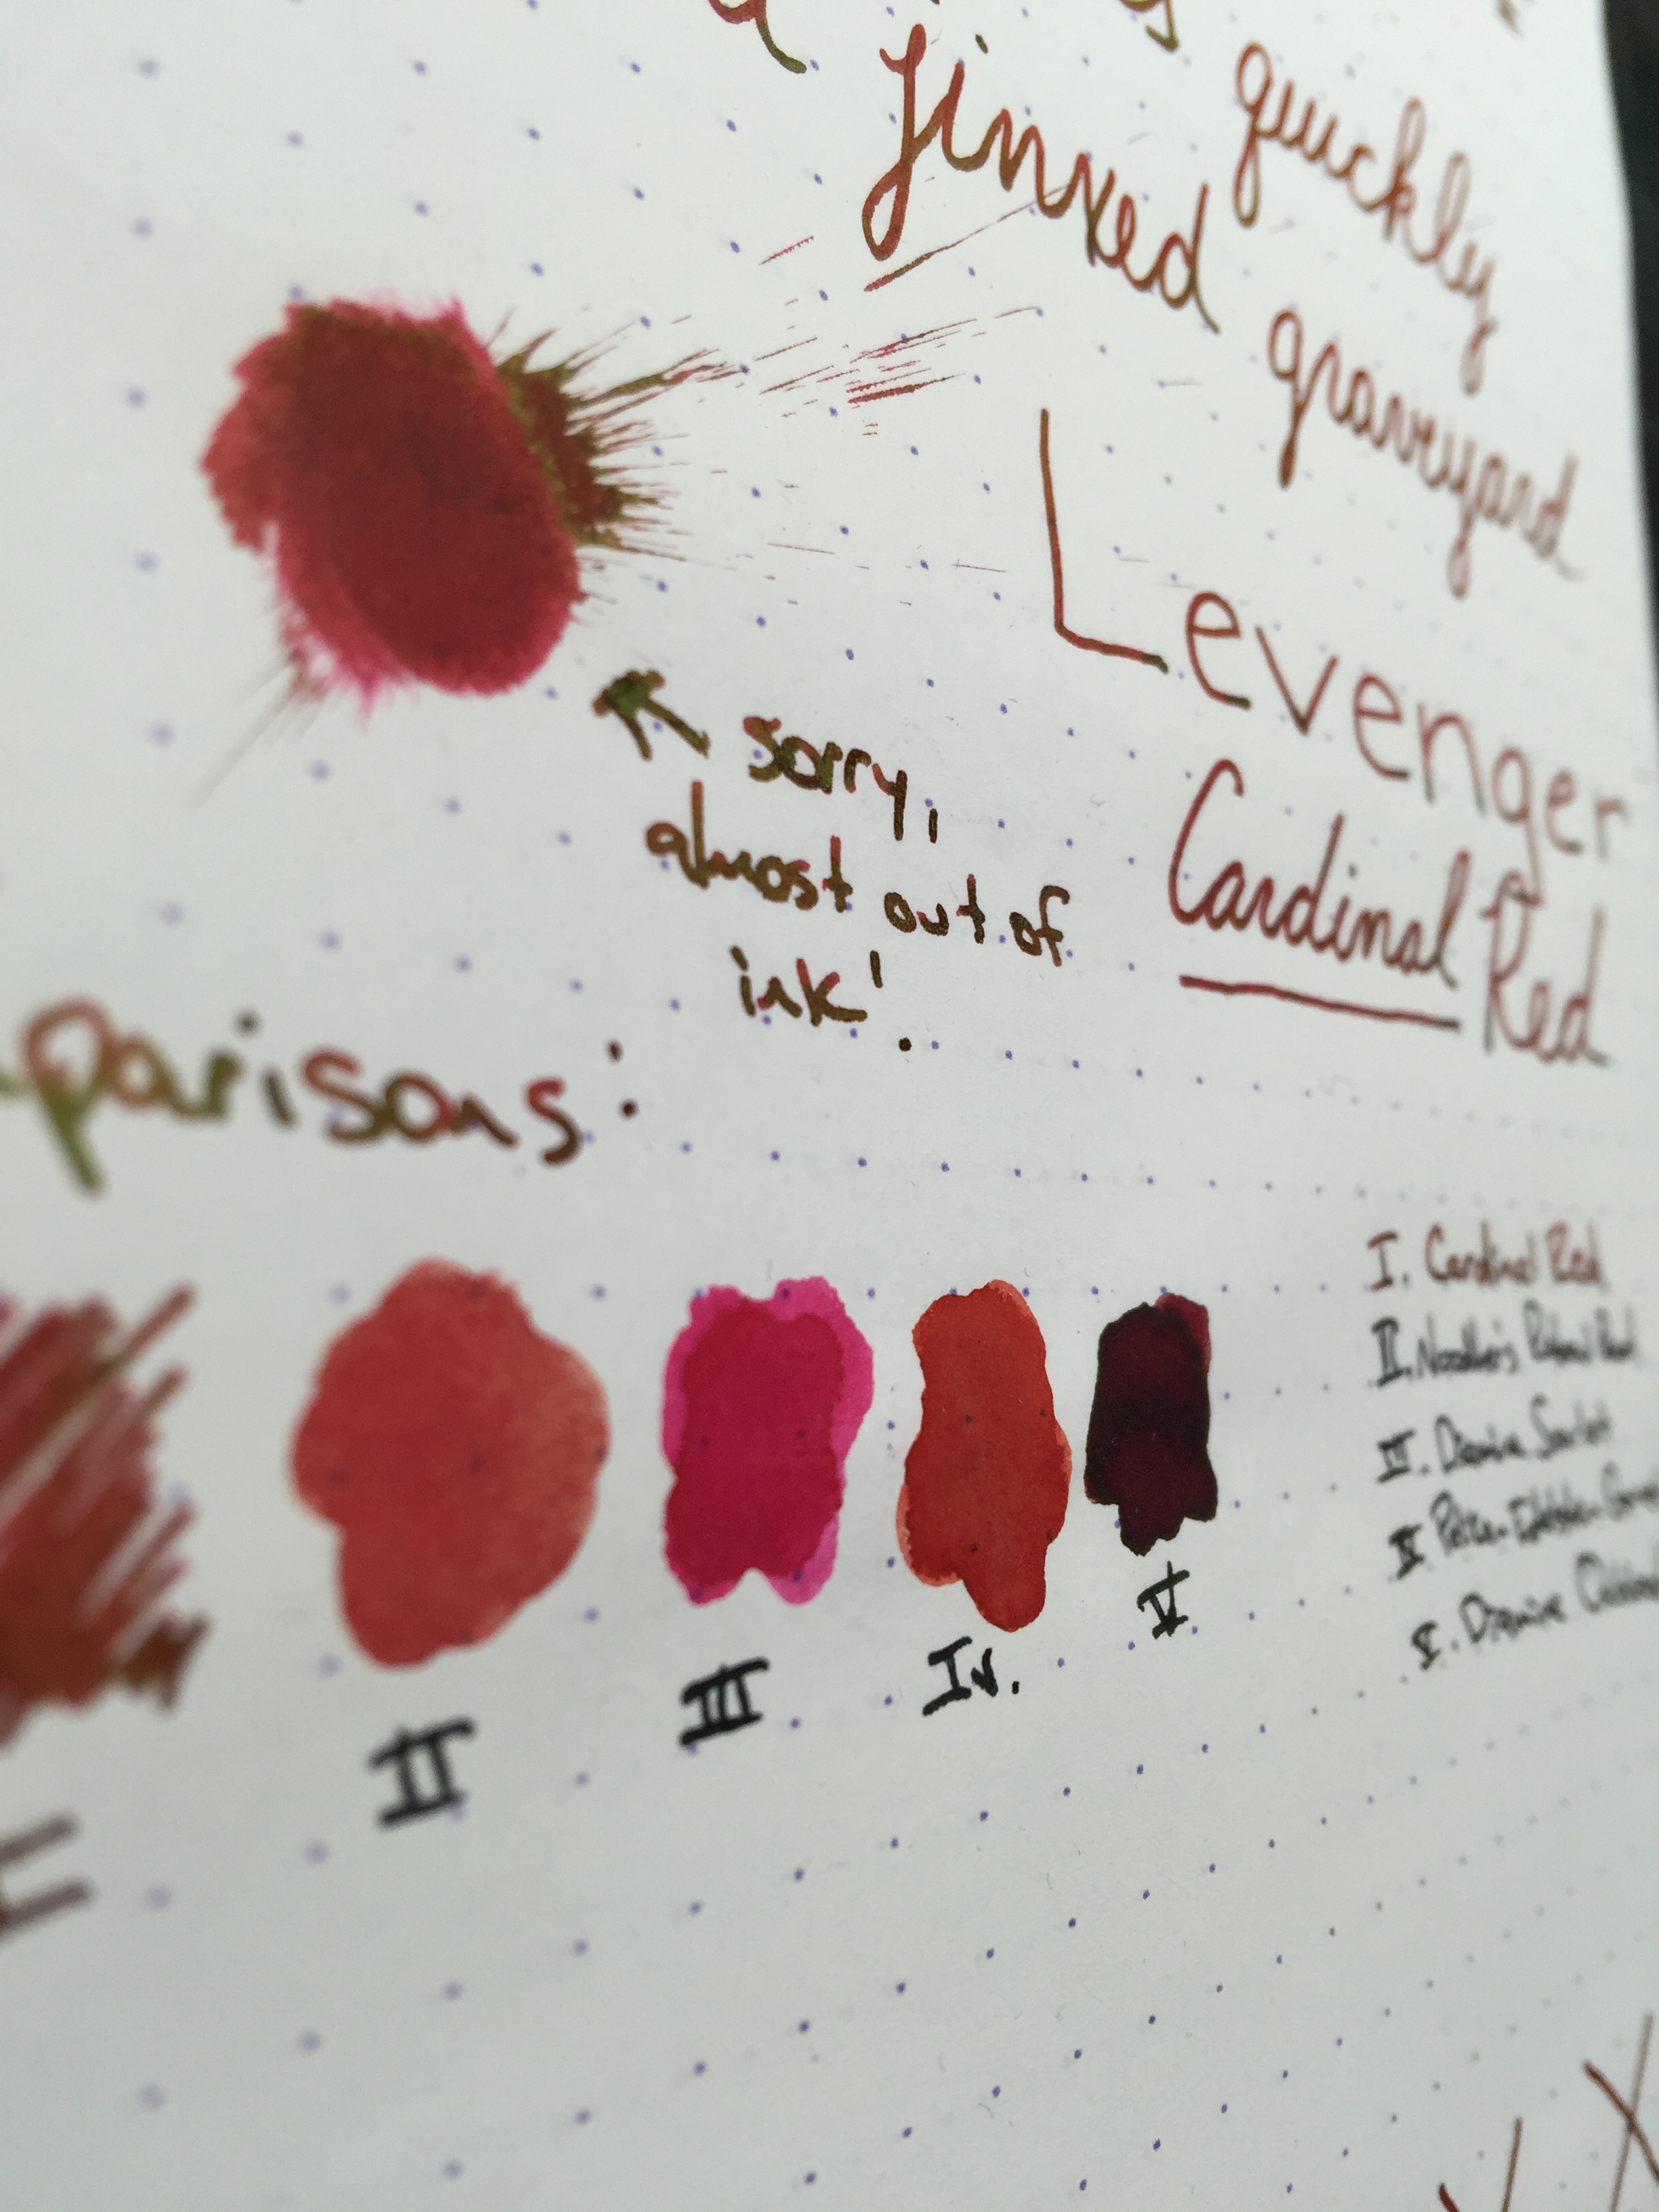 quickly
Jinxed graveyard
Levenger
Cardinal Red
sorry,
almost out of
ink!
parisons:
I. Cardinal Red
II. Noodler's
III. Diamine Scarlet
IV
V. Diamine
II
III
IV.
V